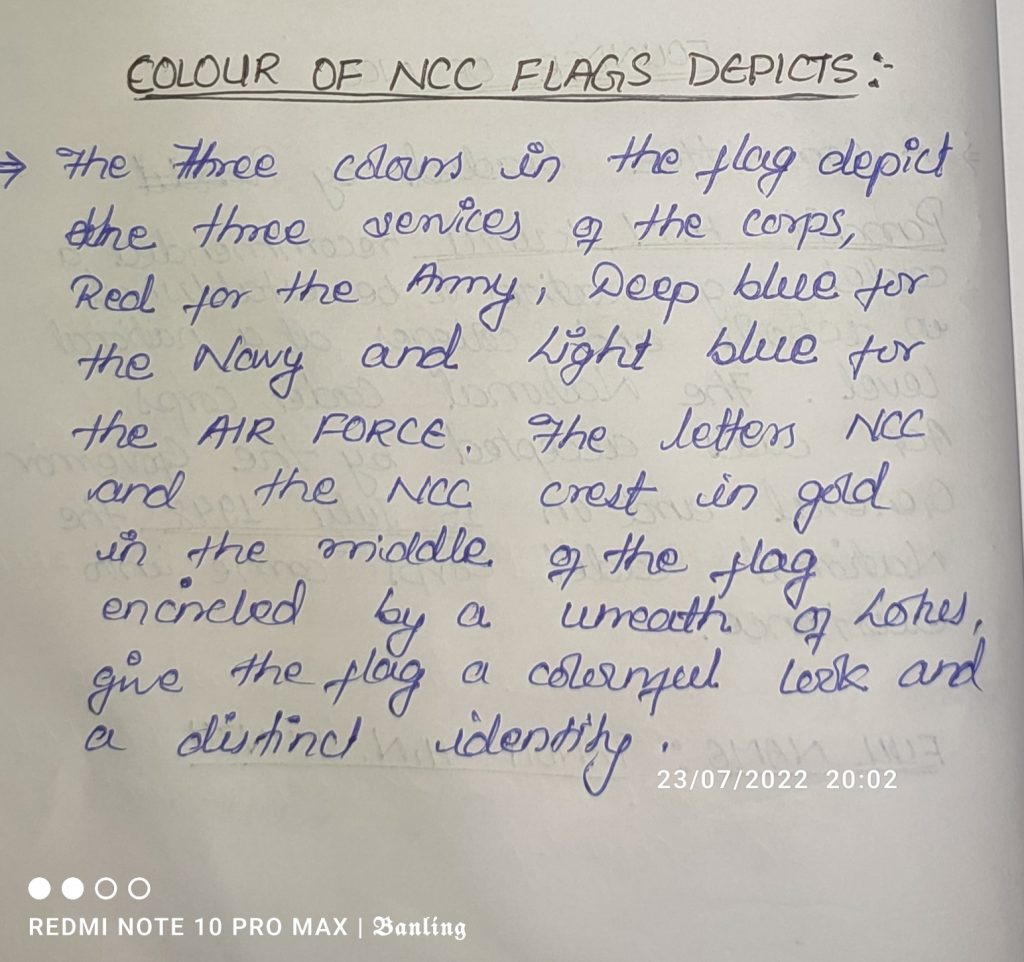 COLOUR OF NCC FLAGS DEPICTS :-
⇒ The three colours in the flag depict
the three services of the corps,
Red for the Army, Deep blue for
the Navy and Light blue for
the AIR FORCE. The letters NCC
and the NCC crest in gold
in the middle of the flag
encircled by a wreath of Lotus,
give the flag a colourful look and
a distinct identity.
23/07/2022 20:02
REDMI NOTE 10 PRO MAX | Banling